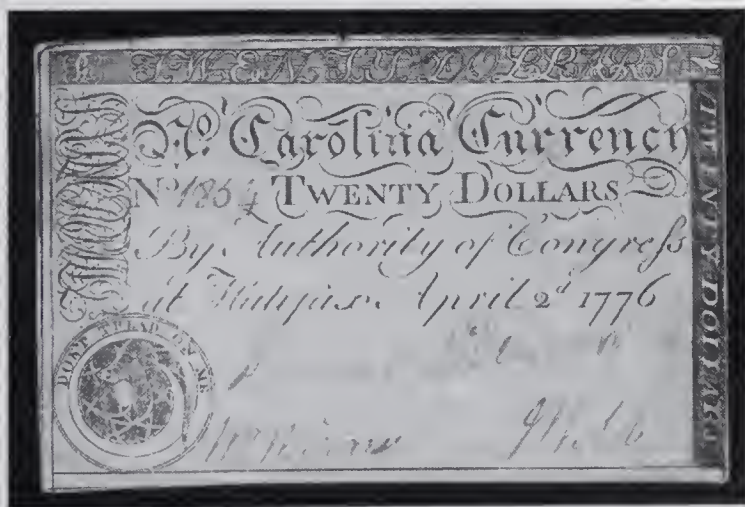 TWENTY DOLLARS
No. Carolina Currency
No. 1854 TWENTY DOLLARS
By Authority of Congress
at Halifax April 2d 1776
DONT TREAD ON ME
TWENTY DOLLARS